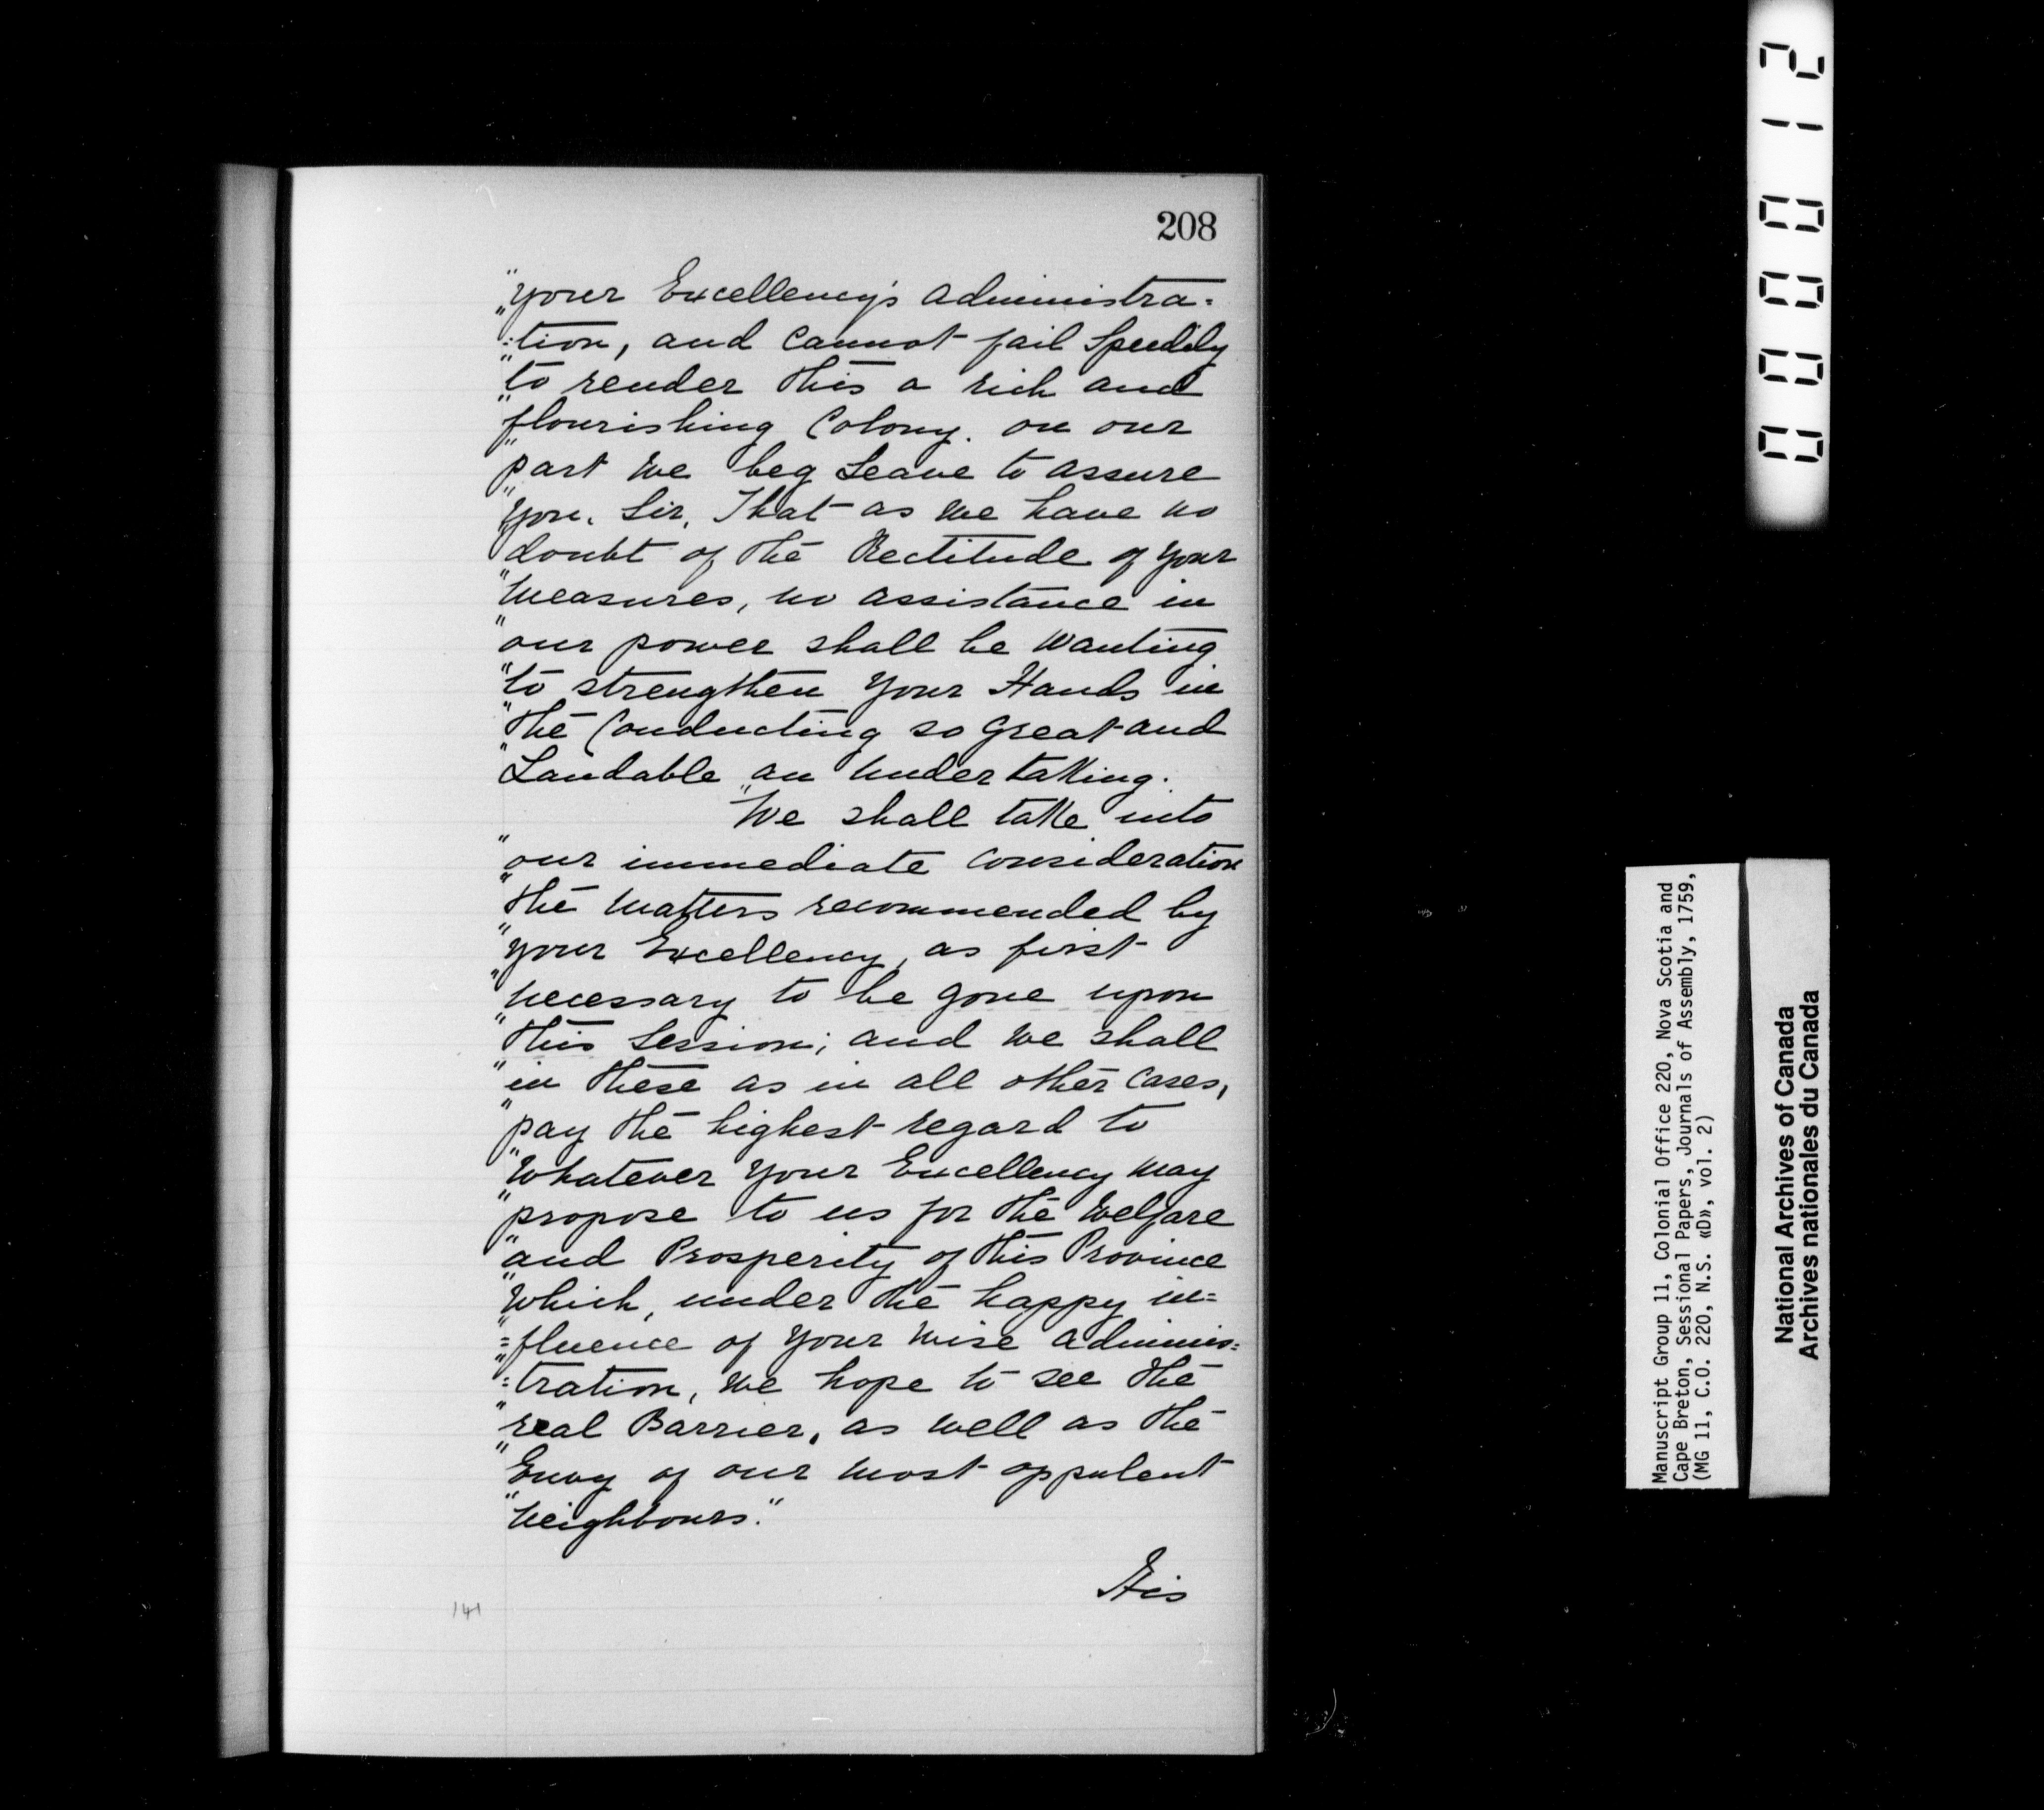 208
"your Excellency's administra=
"=tion, and cannot fail Speedily
"to render this a rich and
"flourishing Colony. on our
"part we beg Leave to assure
"you, Sir, That as we have no
"doubt of the Rectitude of your
"measures, no assistance in
"our power shall be wanting
"to strengthen your Hands in
"the Conducting so great and
"Laudable an undertaking.
"We shall take into
"our immediate Consideration
"the matters recommended by
"your Excellency, as first
"necessary to be gone upon
"this Session; and we shall
"in these as in all other Cases,
"pay the highest regard to
"whatever your Excellency may
"propose to us for the Welfare
"and Prosperity of this Province
"which, under the happy in=
"=fluence of your wise adminis=
"=tration, we hope to see the
"real Barrier, as well as the
"Envy of our most oppulent
"neighbours."
His
141
000012
Manuscript Group 11, Colonial Office 220, Nova Scotia and
Cape Breton, Sessional Papers, Journals of Assembly, 1759,
(MG 11, C.O. 220, N.S. «D», vol. 2)
National Archives of Canada
Archives nationales du Canada